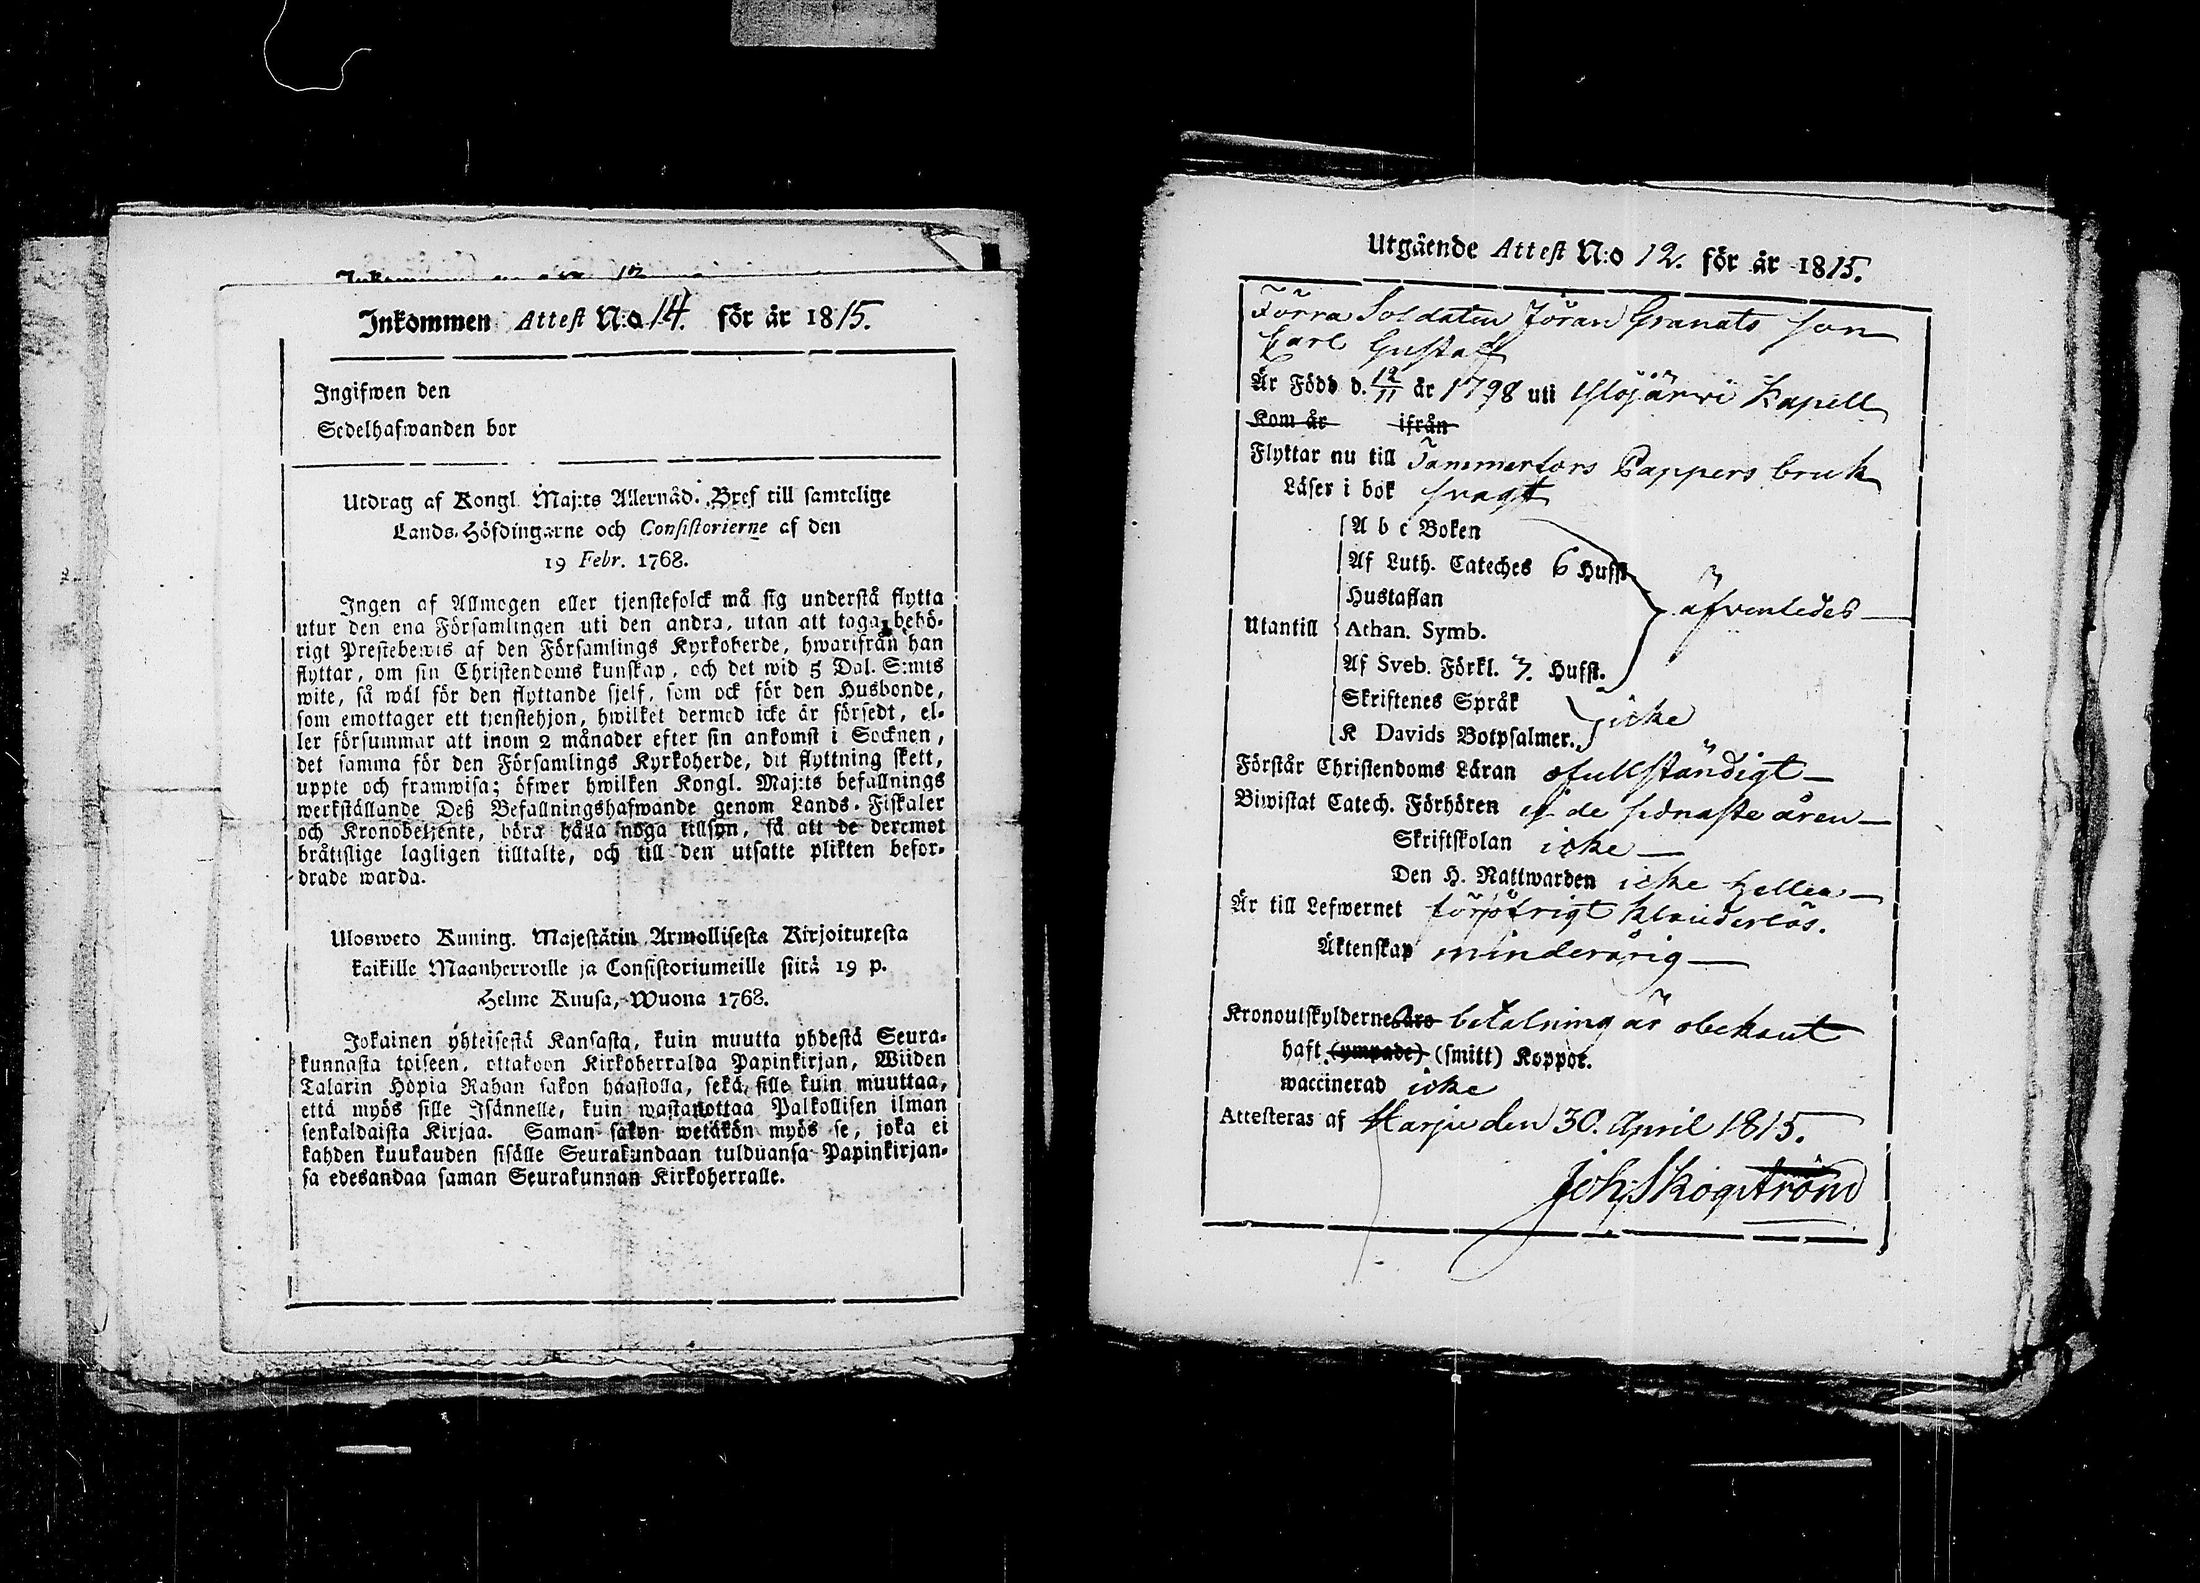 Inkommen Attest N:o 14. för år 1815.
Ingifwen den
Sedelhafwanden bor
Utdrag af Kongl. Maj:ts Allernåd. Bref till samtelige
Lands-Höfdingarne och Consistorierne af den
19 Febr. 1768.
Ingen af Allmogen eller tjenstefolck må sig understå flytta
utur den ena Församlingen uti den andra, utan att taga behö-
rigt Prestebewis af den Församlings Kyrkoherde, hwarifrån han
flyttar, om sin Christendoms kunskap, och det wid 5 Dal. S:mts
wite, så wäl för den flyttande sjelf, som ock för den Husbonde,
som emottager ett tjenstehjon, hwilket dermed icke är försedt, el-
ler försummar att inom 2 månader efter sin ankomst i Socknen,
det samma för den Församlings Kyrkoherde, dit flyttning skett,
uppte och framwisa; öfwer hwilken Kongl. Maj:ts befallnings
werkställande Deß Befallningshafwande genom Lands-Fiskaler
och Kronobetjente, böra hålla noga tillsyn, så att de deremot
bråttslige lagligen tilltalte, och till den utsatte plikten befor-
drade warda.
Ulosweto Kuning. Majestätin Armollisesta Kirjoituxesta
kaikille Maanherroille ja Consistoriumeille siitä 19 p.
Helme Kuusa, Wuona 1768.
Jokainen yhteisestä Kansasta, kuin muutta yhdestä Seura-
kunnasta toiseen, ottakoon Kirkoherralda Papinkirjan, Wiiden
Talarin Hopia Rahan sakon haastolla, sekä sille kuin muuttaa,
että myös sille Isännelle, kuin wastanottaa Palkollisen ilman
senkaldaista Kirjaa. Saman sakon wetäkön myös se, joka ei
kahden kuukauden sisälle Seurakundaan tulduansa Papinkirjan-
sa edesandaa saman Seurakunnan Kirkoherralle.
Utgående Attest N:o 12. för år 1815.
Förra Soldaten Jöran Granats son
Carl Gustaf
Är Född d. 12/11 år 1798 uti Ylöjärvi Kapell
Kom år ifrån
Flyttar nu till Tammerfors Pappers bruk
Läser i bok svagt
A b c Boken
Af Luth. Cateches 6 Hufst
Hustaflan
äfvenledes
Utantill Athan. Symb.
Af Sveb. Förkl. 3. Hufst.
Skriftenes Språk
icke
K Davids Botpsalmer.
Förstår Christendoms Läran ofullständigt
Biwistat Catech. Förhören ej de sednaste åren
Skriftskolan icke
Den H. Nattwarden icke heller
Är till Lefwernet föröfrigt klanderlös.
Äktenskap minderårig
Kronoutskylderne äro betalning är obekant
haft (ympade) (smitt) Koppor.
waccinerad icke
Attesteras af Harju den 30. April 1815.
Joh. Skogström